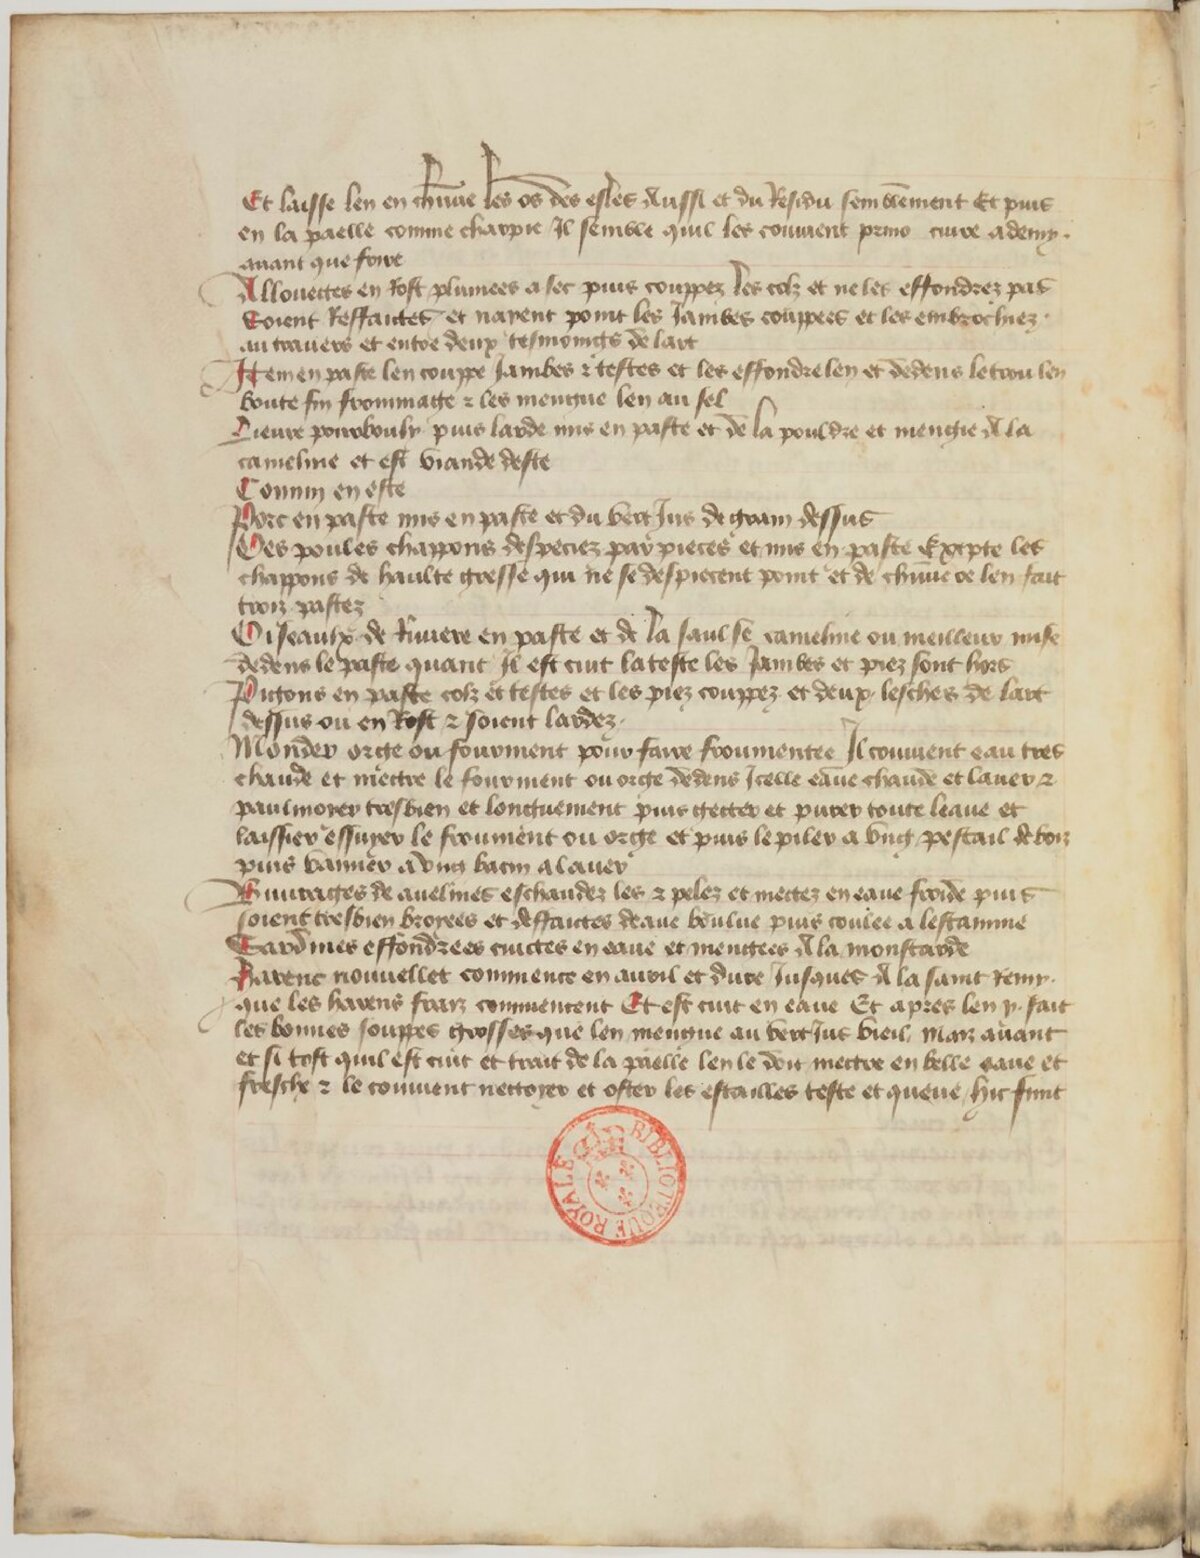 Et laisse len en chūne les os des esles Aussi et du Residu semblēment Et puis
en la paelle comme charpie Il semble quil les couuient primo cuire a demy.
auant que frire
Allouectes en Rost plumees a sec puis couppez les colz et ne les effondrez pas
Soient Reffaictes et nayent point les Jambes couppees et les embrochiez.
au trauers et entre deux tesmoings de lart
Item en paste len couppe Jambes 2 testes et les effondre len et dedens le trou len
boute fin frommage 2 les mengue len au sel
Lieure pourbouly puis larde mis en paste et de la pouldre et mengie A la
cameline et est viande deste
Connin en este
Porc en paste mis en paste et du vertJus de grain dessus
Des poules chappons despeciez par pieces et mis en paste Excepte les
chappons de haulte gresse qui ne se despiecent point et de chūne ce len fait
troiz pastez
Oiseaulx de Riuiere en paste et de la saulse cameline ou meilleur mise
dedens le paste quant Il est cuit la teste les Jambes et piez sont hors
Pigons en paste colz et testes et les piez couppez et deux lesches de lart
dessus ou en Rost 2 soient lardez.
Monder orge ou fourment pour faire froumentee Il couuient eau tres
chaude et mectre le fourment ou orge dedens Icelle eaue chaude et lauer 2
paulmoyer tresbien et longuement puis gecter et purer toute leaue et
laissier essuyer le frument ou orge et puis le piler a vng pestail de boiz
puis vanner a vng bacin a lauer
Buurages de auelines eschaudez les 2 pelez et mectez en eaue froide puis
soient tresbien broyees et deffaictes deaue boulue puis coulee a lestamine
Sardines effondrees cuictes en eaue et mengees A la moustarde
Harenc nouuellet commence en auril et dure Jusques A la saint Remy.
que les harens fraiz commencent Et est cuit en eaue Et apres len y fait
les bonnes souppes grosses que len mengue au vertJus vieil Maiz auant
et si tost quil est cuit et trait de la paelle len le doit mectre en belle eaue et
fresche 2 le conuient nectoyer et oster les escailles teste et queue hic sunt
BIBLIOTEQUE ROYALE